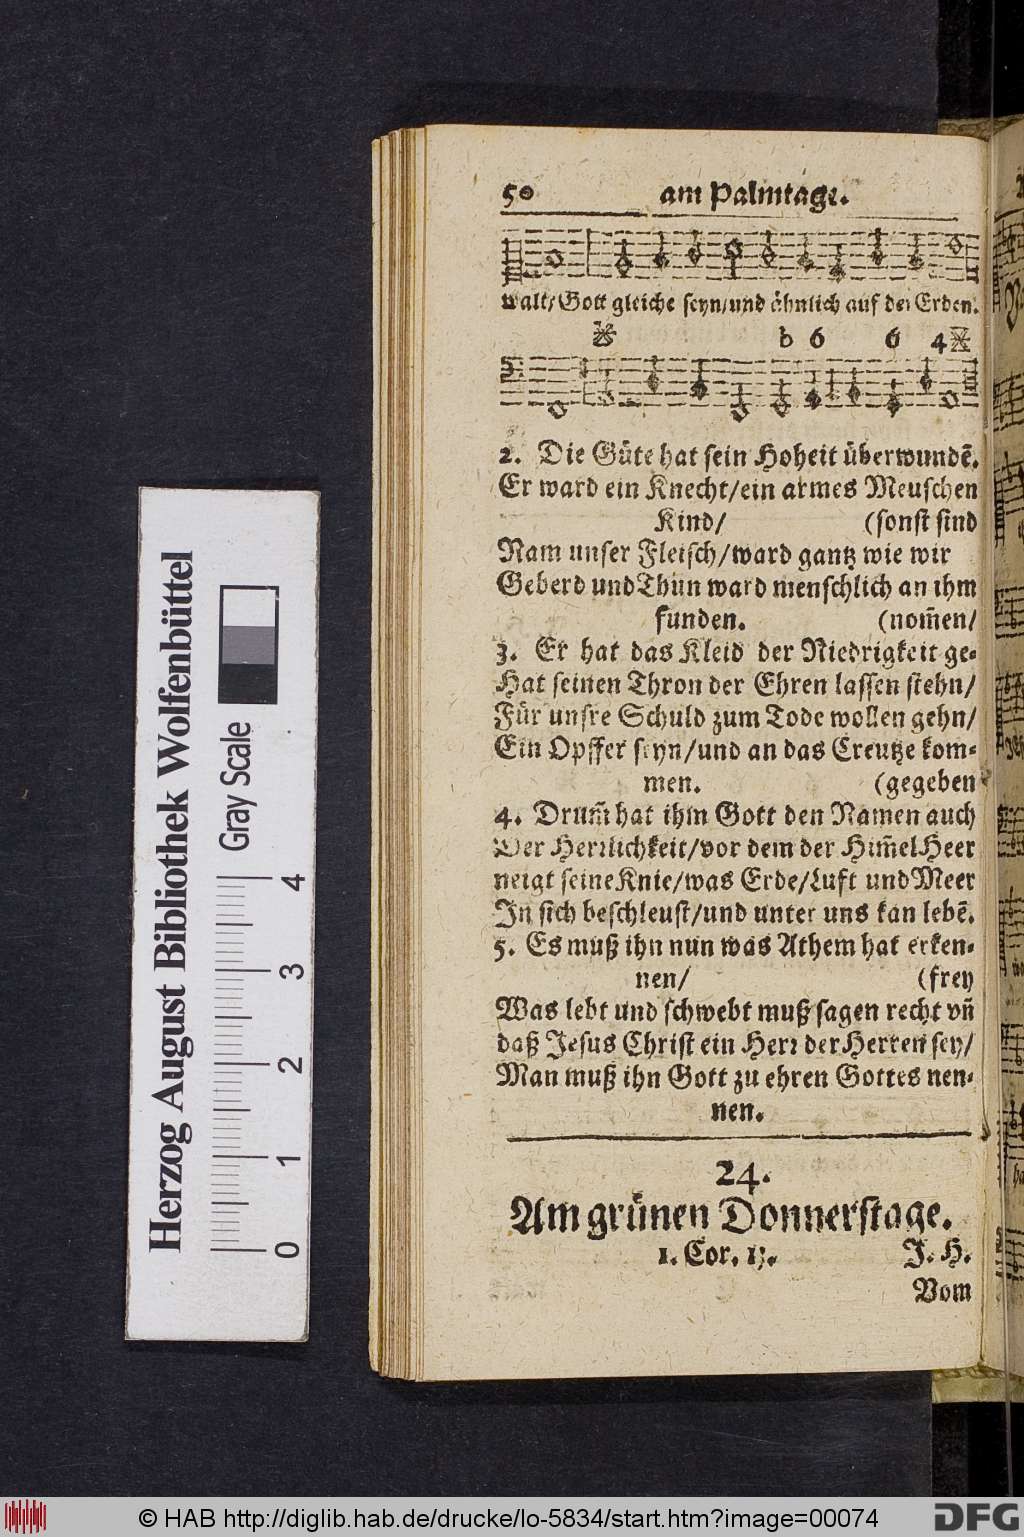 50 am Palmtage.
walt/Gott gleiche seyn/und ähnlich auf der Erden.
b 6 6 4
2. Die Güte hat sein Hoheit überwundē.
Er ward ein Knecht/ein armes Menschen
Kind/ (sonst sind
Nam unser Fleisch/ward gantz wie wir
Geberd und Thun ward menschlich an ihm
funden. (nom̃en/
3. Er hat das Kleid der Niedrigkeit ge-
Hat seinen Thron der Ehren lassen stehn/
Für unsre Schuld zum Tode wollen gehn/
Ein Opffer seyn/und an das Creutze kom-
men. (gegeben
4. Drum̃ hat ihm Gott den Namen auch
Der Herrlichkeit/vor dem der Him̃el Heer
neigt seine Knie/was Erde/Luft und Meer
In sich beschleust/und unter uns kan lebē.
5. Es muß ihn nun was Athem hat erken-
nen/ (frey
Was lebt und schwebt muß sagen recht vñ
daß Jesus Christ ein Herr der Herren sey/
Man muß ihn Gott zu ehren Gottes nen-
nen.
24.
Am grünen Donnerstage.
1. Cor. J. H.
Vom
Herzog August Bibliothek Wolfenbüttel
Gray Scale
0 1 2 3 4
© HAB http://diglib.hab.de/drucke/lo-5834/start.htm?image=00074
DFG